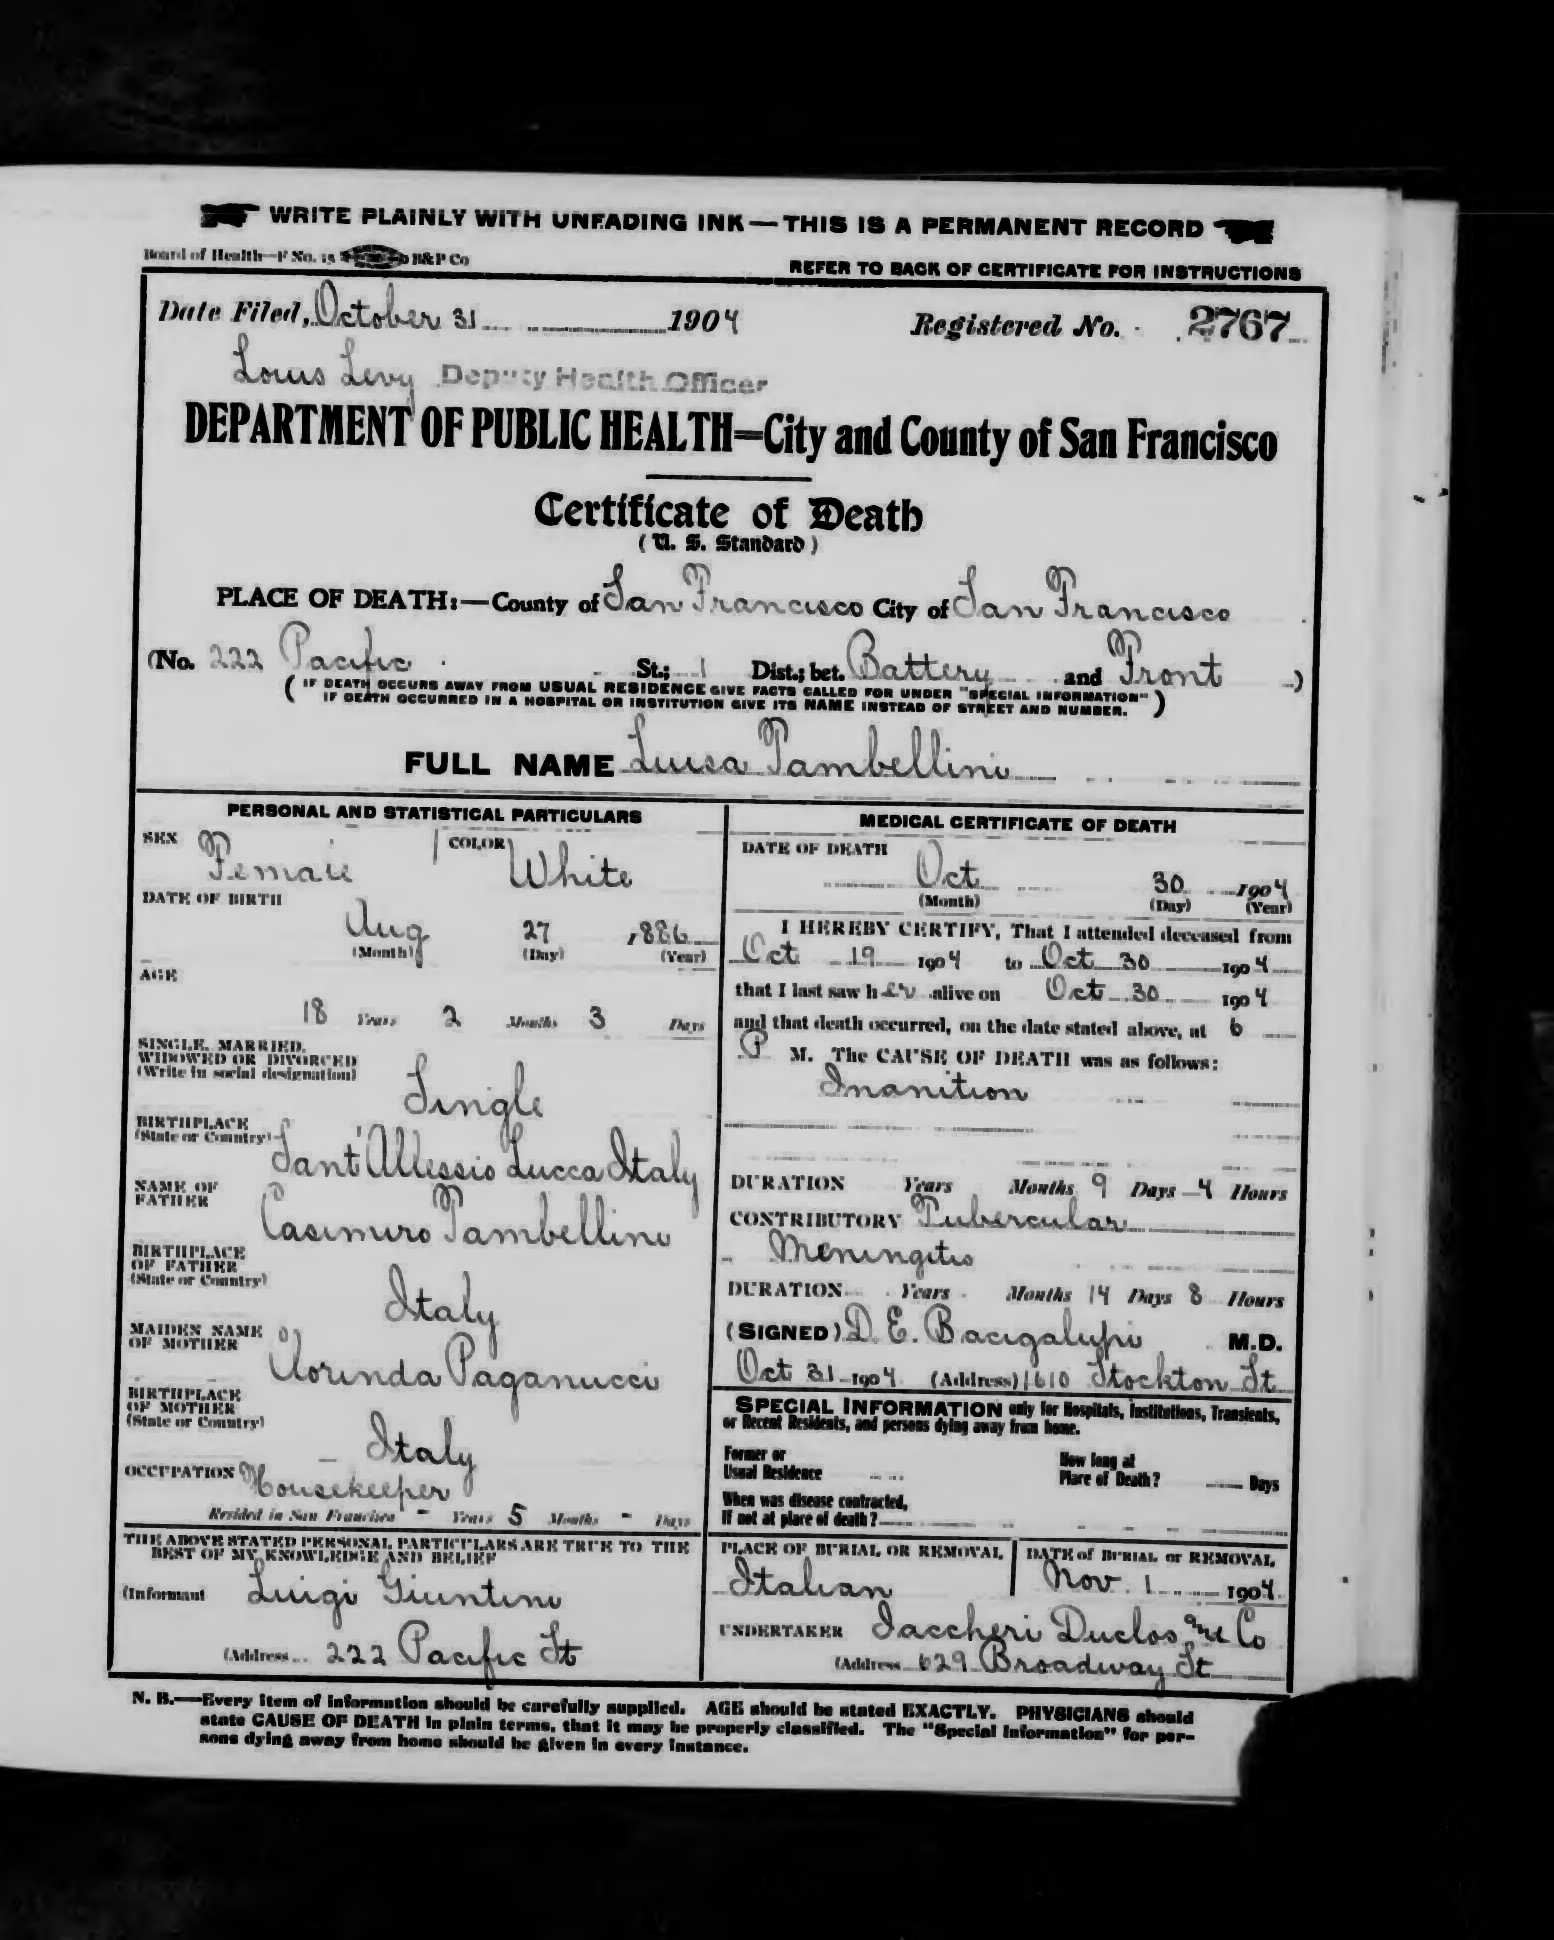 WRITE PLAINLY WITH UNFADING INK — THIS IS A PERMANENT RECORD
Board of Health—F No. 15 B&P Co
REFER TO BACK OF CERTIFICATE FOR INSTRUCTIONS
Date Filed, October 31 1904 Registered No. 2767
Louis Levy Deputy Health Officer
DEPARTMENT OF PUBLIC HEALTH=City and County of San Francisco
Certificate of Death
(U. S. Standard)
PLACE OF DEATH:—County of San Francisco City of San Francisco
(No. 222 Pacific St.; 1 Dist.; bet. Battery and Front )
( IF DEATH OCCURS AWAY FROM USUAL RESIDENCE GIVE FACTS CALLED FOR UNDER "SPECIAL INFORMATION"
IF DEATH OCCURRED IN A HOSPITAL OR INSTITUTION GIVE ITS NAME INSTEAD OF STREET AND NUMBER. )
FULL NAME Luisa Pambellini
PERSONAL AND STATISTICAL PARTICULARS
SEX Female COLOR White
DATE OF BIRTH
Aug 27 1886
(Month) (Day) (Year)
AGE
18 Years 2 Months 3 Days
SINGLE, MARRIED,
WIDOWED OR DIVORCED
(Write in social designation)
Single
BIRTHPLACE
(State or Country) Sant'Allessio Lucca Italy
NAME OF
FATHER Casimiro Pambellini
BIRTHPLACE
OF FATHER
(State or Country) Italy
MAIDEN NAME
OF MOTHER Clorinda Paganucci
BIRTHPLACE
OF MOTHER
(State or Country) Italy
OCCUPATION Housekeeper
Resided in San Francisco - Years 5 Months - Days
THE ABOVE STATED PERSONAL PARTICULARS ARE TRUE TO THE
BEST OF MY KNOWLEDGE AND BELIEF
(Informant Luigi Giuntini
(Address 222 Pacific St
MEDICAL CERTIFICATE OF DEATH
DATE OF DEATH
Oct 30 1904
(Month) (Day) (Year)
I HEREBY CERTIFY, That I attended deceased from
Oct 19 1904 to Oct 30 1904
that I last saw her alive on Oct 30 1904
and that death occurred, on the date stated above, at 6
P M. The CAUSE OF DEATH was as follows:
Inanition
DURATION Years Months 9 Days 4 Hours
CONTRIBUTORY Tubercular
Meningitis
DURATION Years Months 14 Days 8 Hours
(SIGNED) D. E. Bacigalupi M.D.
Oct 31 1904 (Address) 1610 Stockton St
SPECIAL INFORMATION only for Hospitals, Institutions, Transients,
or Recent Residents, and persons dying away from home.
Former or
Usual Residence
How long at
Place of Death? Days
When was disease contracted,
If not at place of death?
PLACE OF BURIAL OR REMOVAL
Italian
DATE of BURIAL or REMOVAL
Nov. 1 1904
UNDERTAKER Iaccheri Duclos & Co
(Address 629 Broadway St
N. B.—Every item of information should be carefully supplied. AGE should be stated EXACTLY. PHYSICIANS should
state CAUSE OF DEATH in plain terms, that it may be properly classified. The "Special Information" for per-
sons dying away from home should be given in every instance.